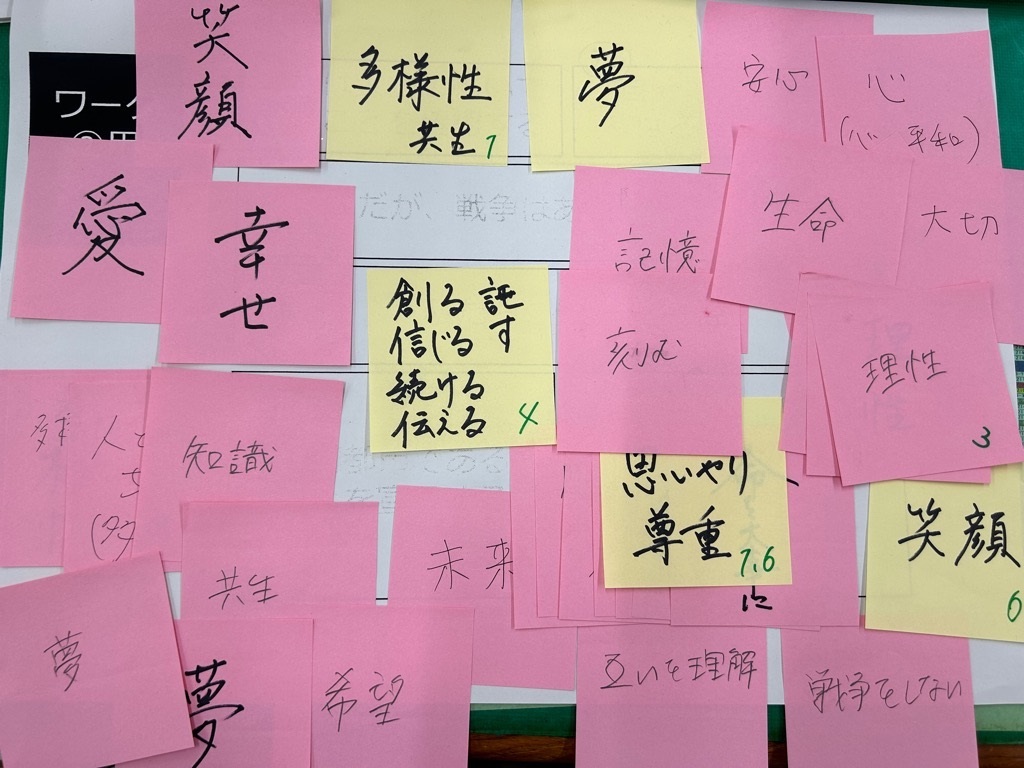 笑
顔
多様性
共生 1
夢
安心
心
(心 平和)
ワーク
愛
幸
せ
だが、戦争はあ
記憶
生命
大切
創る 託
信じる す
続ける
伝える 4
刻む
理性
3
知識
人
思いやり
尊重 7.6
笑顔
6
共生
未来
に
夢
夢
希望
互いを理解
戦争をしない